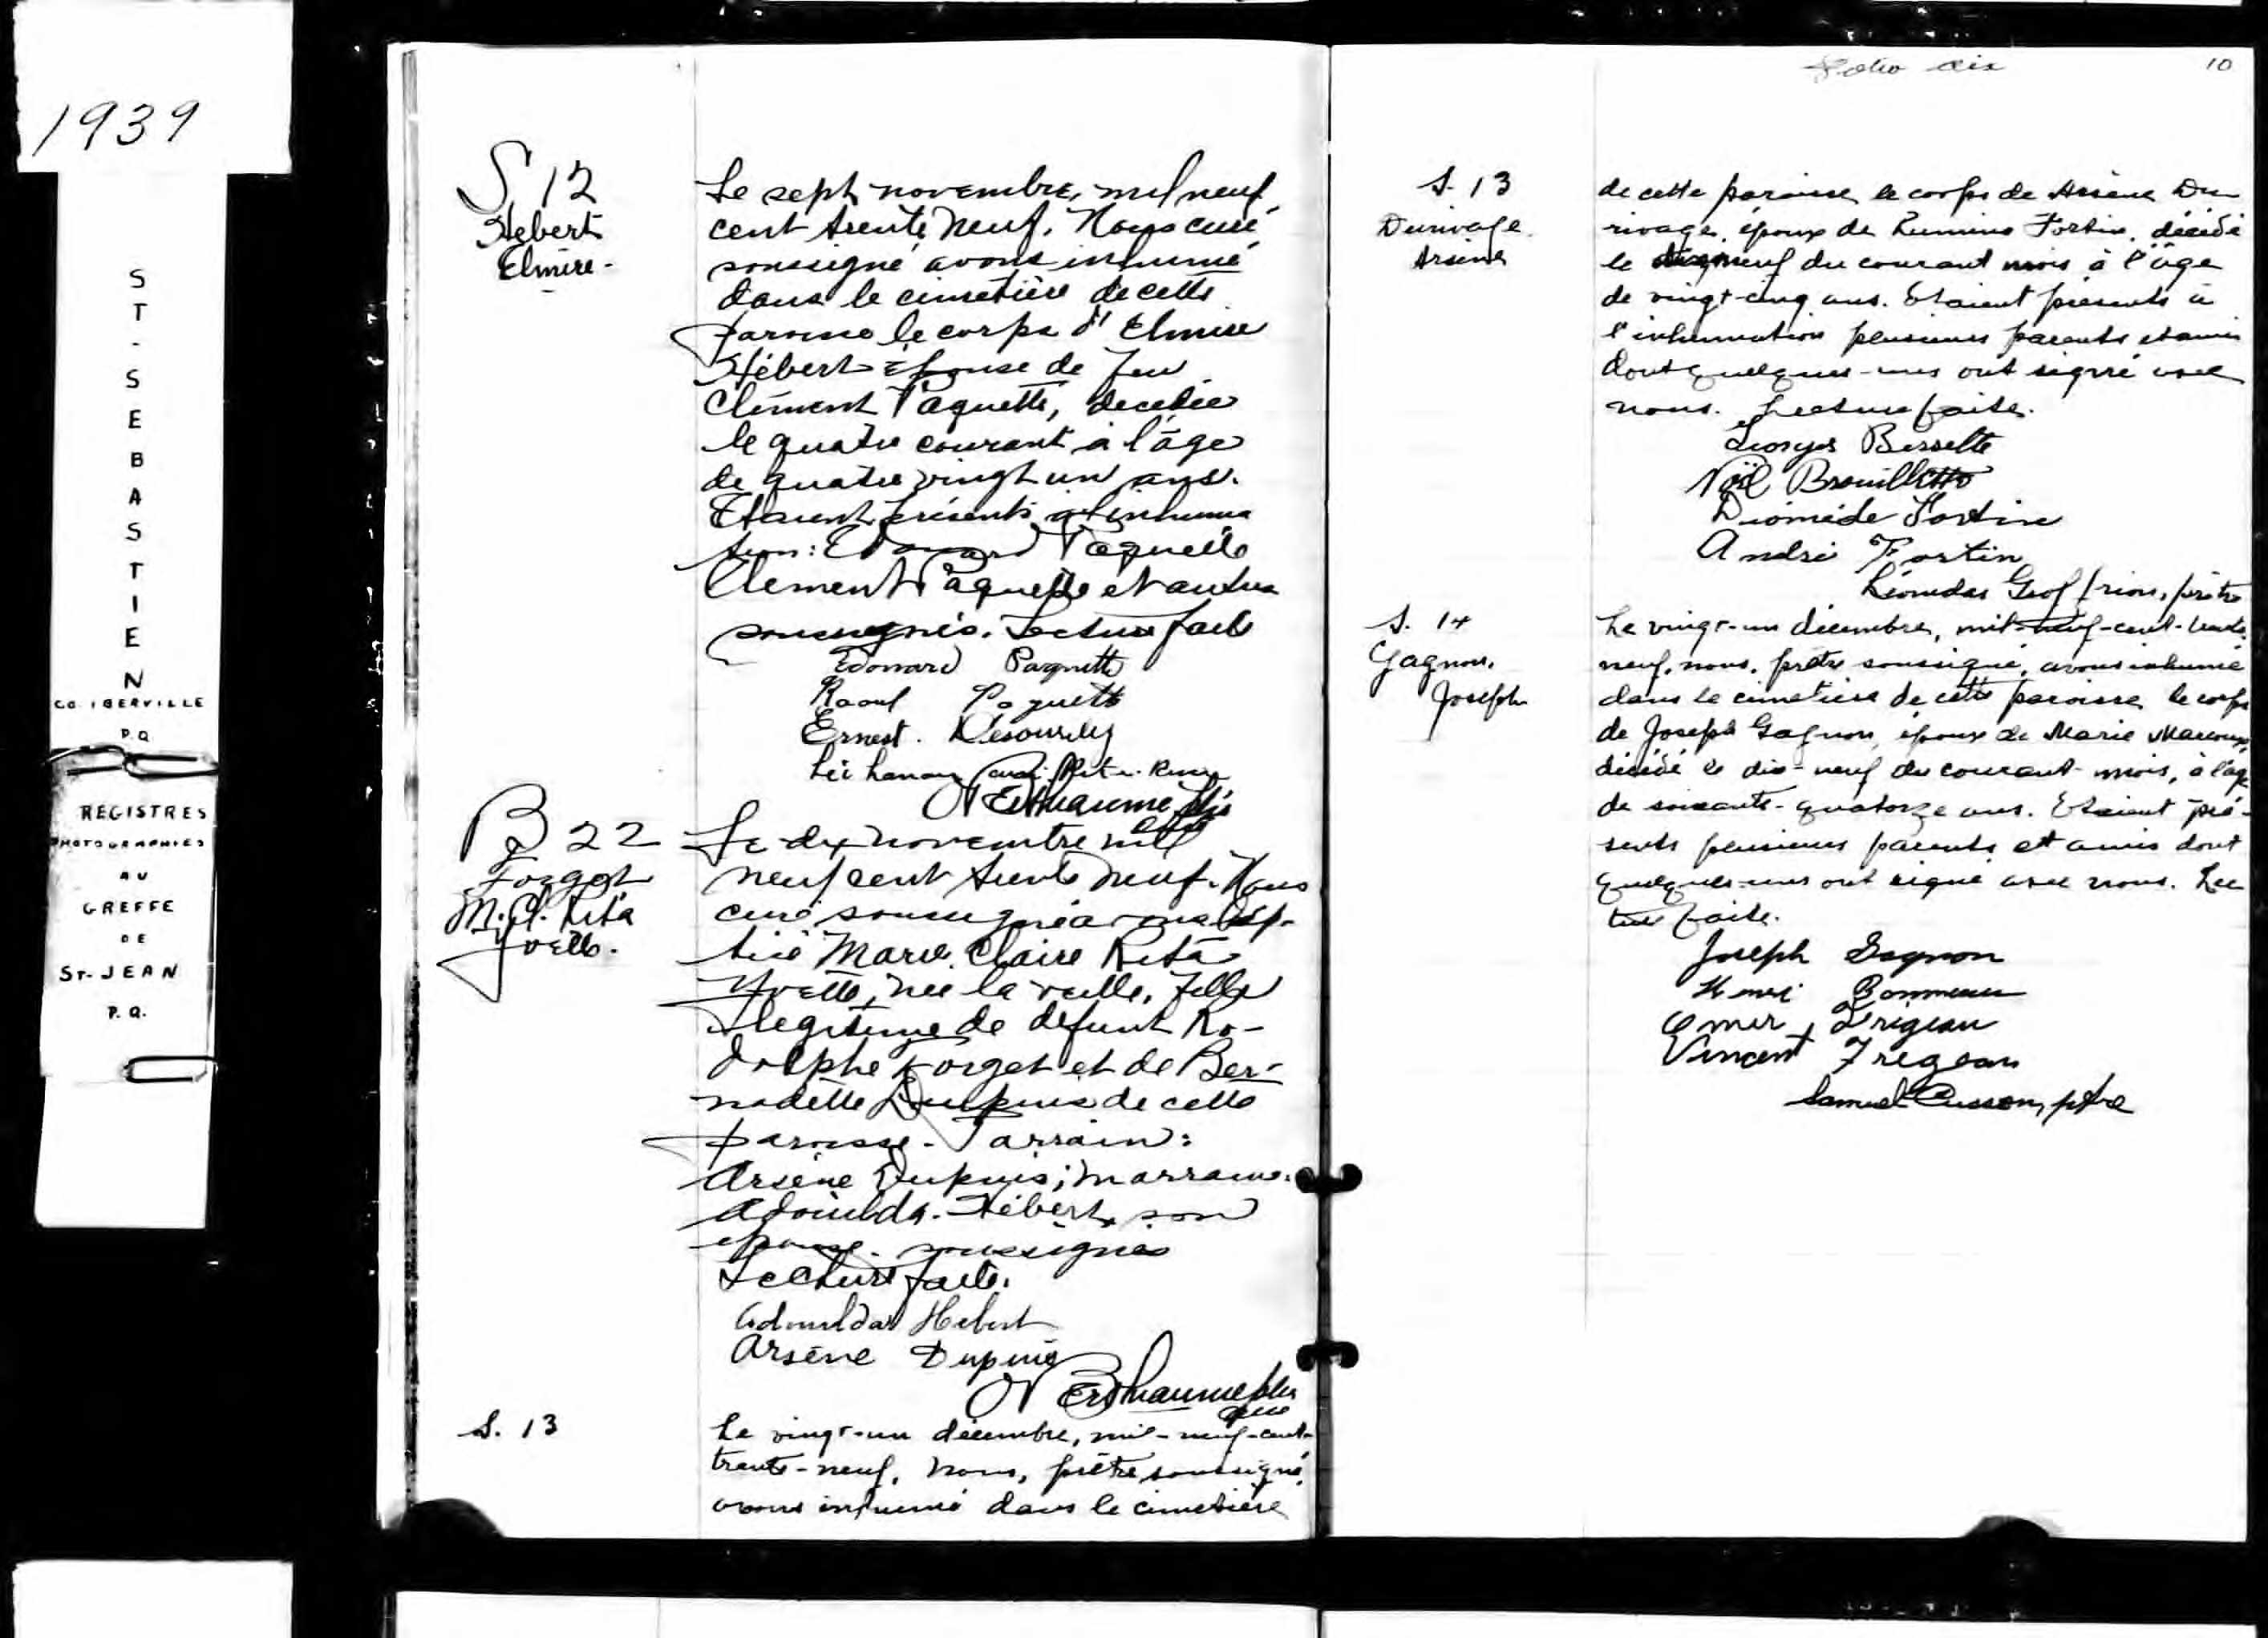 1939
ST-SEBASTIEN
CO. IBERVILLE
P.Q.
REGISTRES
PHOTOGRAPHIES
AU
GREFFE
DE
ST-JEAN
P.Q.
S 12
Hebert
Elmire-
Le sept novembre, mil neuf
cent trente neuf. Nous curé
soussigné avons inhumé
dans le cimetière de cette
paroisse le corps d'Elmire
Hébert épouse de feu
Clément Paquette, decedée
le quatre courant à l'âge
de quatre vingt un ans.
Etaient présents à l'inhuma
tion: Edouard Paquette
Clement Paquette et autres
soussignés. Lecture faite
Edouard Paquette
Raoul Paquette
Ernest
B 22
Forget
M. Cl. Rita
Yvette.
Le dix novembre mil
neuf cent trente neuf. Nous
curé soussigné avons bap-
tisé Marie Claire Rita
Yvette, née la veille, fille
légitime de défunt Ro-
dolphe Forget et de Ber-
nadette Dupuis de cette
paroisse. Parrain:
Arsène Dupuis; marraine:
Adouilda Hébert, son
épouse. soussignés
Lecture faite.
Adouilda Hebert
Arsène Dupuis
S. 13
Le vingt-un décembre, mil-neuf-cent-
trente-neuf, nous, prêtre soussigné,
avons inhumé dans le cimetière
Folio dix
10
S. 13
Durivage
Arsène
de cette paroisse le corps de Arsène Du
rivage, époux de Fortin, décédé
le neuf du courant mois à l'âge
de vingt-cinq ans. Etaient présents à
l'inhumation plusieurs parents et amis
dont quelques-uns ont signé avec
nous. Lecture faite.
Georges Bessette
Noël Brouillette
Diomède Fortin
André Fortin
Léonidas Geoffrion, prêtre
S. 14
Gagnon,
Joseph
Le vingt-un décembre, mil-neuf-cent-trente-
neuf, nous, prêtre soussigné, avons inhumé
dans le cimetière de cette paroisse le corps
de Joseph Gagnon, époux de Marie Marcoux,
décédé le dix-neuf du courant mois, à l'âge
de soixante-quatorze ans. Etaient pré-
sents plusieurs parents et amis dont
quelques-uns ont signé avec nous. Lec
ture faite.
Joseph Gagnon
Henri Bonneau
Omer Frégeau
Vincent Frégeau
Samuel Cusson, ptre